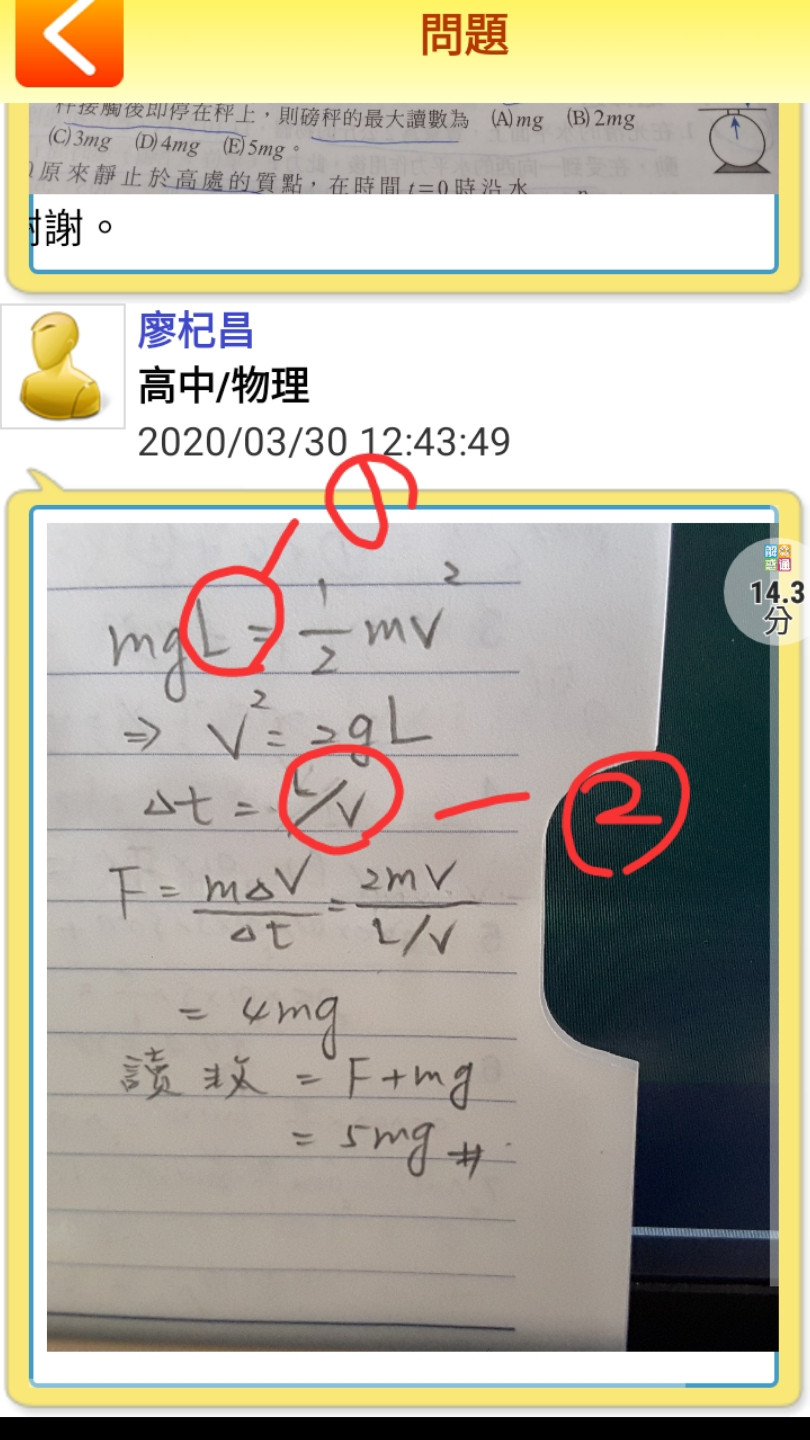 問題
秤接觸後即停在秤上,則磅秤的最大讀數為 (A)mg (B)2mg
(C)3mg (D)4mg (E)5mg。
原來靜止於高處的質點,在時間t=0時沿水
謝謝。
廖杞昌
高中/物理
2020/03/30 12:43:49
①
解惑通
14.3
分
mgL = 1/2 mv²
⇒ v² = 2gL
Δt = L/v
②
F = mΔV/Δt = 2mV/L/V
= 4mg
讀数 = F+mg
= 5mg #